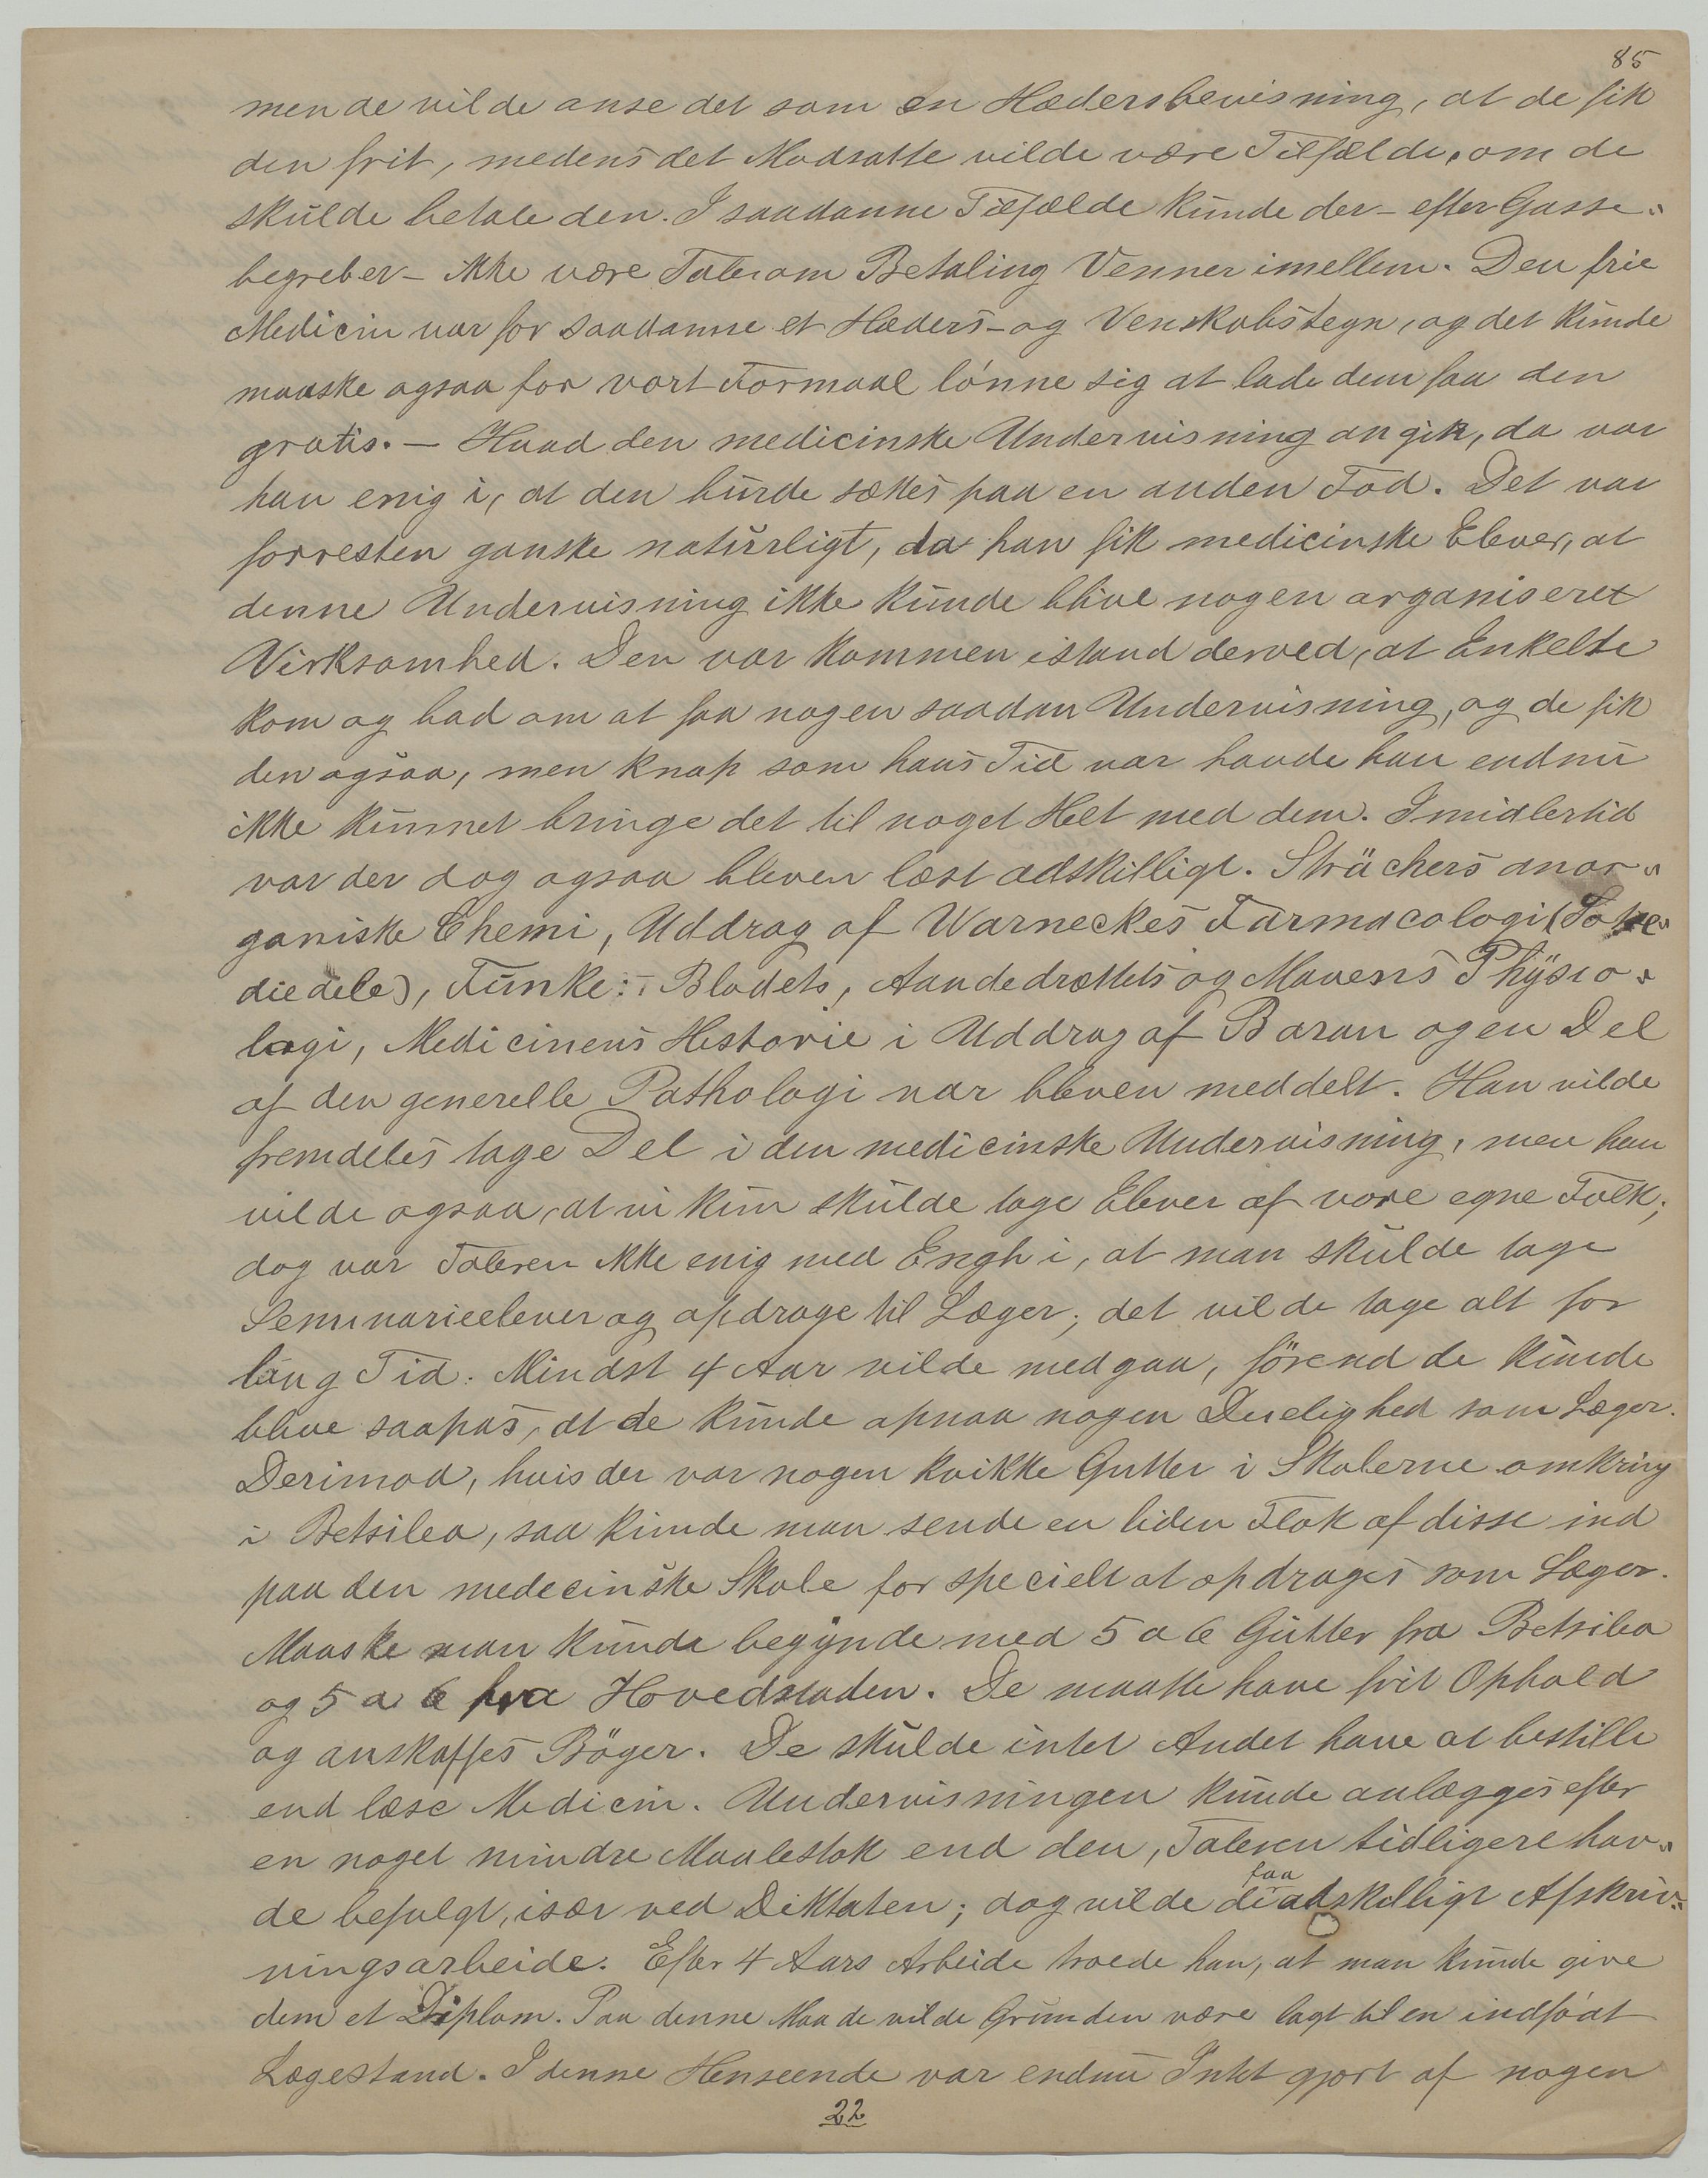 85
men de vilde anse det som en Hædersbevisning, at de fik
den frit, medens det Modsatte vilde være Tilfælde, om de
skulde betale den. I saadanne Tilfælde kunde der – efter Gasse-
begreber – ikke være Tale om Betaling Venner imellem. Den frie
Medicin var for saadanne et Hæders- og Venskabstegn, og det kunde
maaske ogsaa for vort Formaal lønne sig at lade dem faa den
gratis. – Hvad den medicinske Undervisning angik, da var
han enig i, at den burde sættes paa en anden Fod. Det var
forresten ganske naturligt, da han fik medicinske Elever, at
denne Undervisning ikke kunde blive nogen organiseret
Virksomhed. Den var kommen istand derved, at Enkelte
kom og bad om at faa nogen saadan Undervisning, og de fik
den ogsaa, men knap som hans Tid var havde han endnu
ikke kunnet bringe det til noget Helt med dem. Imidlertid
var der dog ogsaa bleven læst adskilligt. Strächers anor-
ganiske Chemi, Uddrag af Warneckes Farmacologi (
diedele), Funke: – Blodets, Aandedrættets og Mavens Physio-
logi, Medicinens Historie i Uddrag af Baran og en Del
af den generelle Pathologi var bleven meddelt. Han vilde
fremdeles tage Del i den medicinske Undervisning, men han
vilde ogsaa, at vi kun skulde tage Elever af vore egne Folk;
dog var Taleren ikke enig med Engh i, at man skulde tage
Seminarieelever og opdrage til Læger; det vilde tage alt for
lang Tid. Mindst 4 Aar vilde medgaa, förend de kunde
blive saapas, at de kunde opnaa nogen Duelighed som Læger.
Derimod, hvis der var nogen kvikke Gutter i Skolerne omkring
i Betsileo, saa kunde man sende en liden Flok af disse ind
paa den medecinske Skole for specielt at opdrages som Læger.
Maaske man kunde begynde med 5 a 6 Gutter fra Betsileo
og 5 a 6 fra Hovedstaden. De maatte have frit Ophold
og anskaffes Böger. De skulde intet Andet have at bestille
end læse Medicin. Undervisningen kunde anlægges efter
en noget mindre Maalestok end den, Taleren tidligere hav-
de befulgt, især ved Diktaten; dog vilde de faa adskilligt Afskriv-
ningsarbeide. Efter 4 Aars Arbeide troede han, at man kunde give
dem et Diplom. Paa denne Maade vilde Grunden være lagt til en indfødt
Lægestand. I denne Henseende var endnu Intet gjort af nogen
22